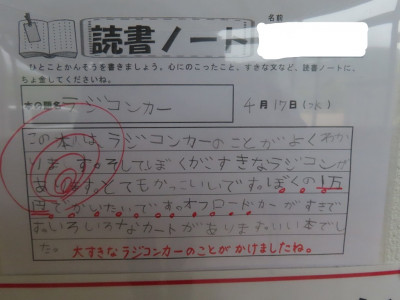 読書ノート
名前
ひとことかんそうを書きましょう。心にのこったこと、すきな文など、読書ノートに、
ちょ金してくださいね。
本の題名 ラジコンカー
4月17日(水)
この本は ラジコンカーのことが よくわか
ります。そしてぼくがすきなラジコンが
あります。とてもかっこいいです。ぼくの1万
円でかいたいです。オフロードカーがすきで
す。いろいろなカートがあります。いい本でし
た。
大すきなラジコンカーのことが かけましたね。